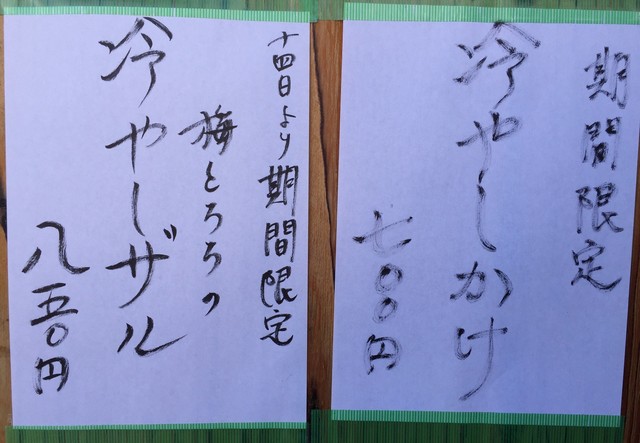 期間限定
冷やしかけ
七〇〇円
十四日より期間限定
梅とろろの
冷やしザル
八五〇円